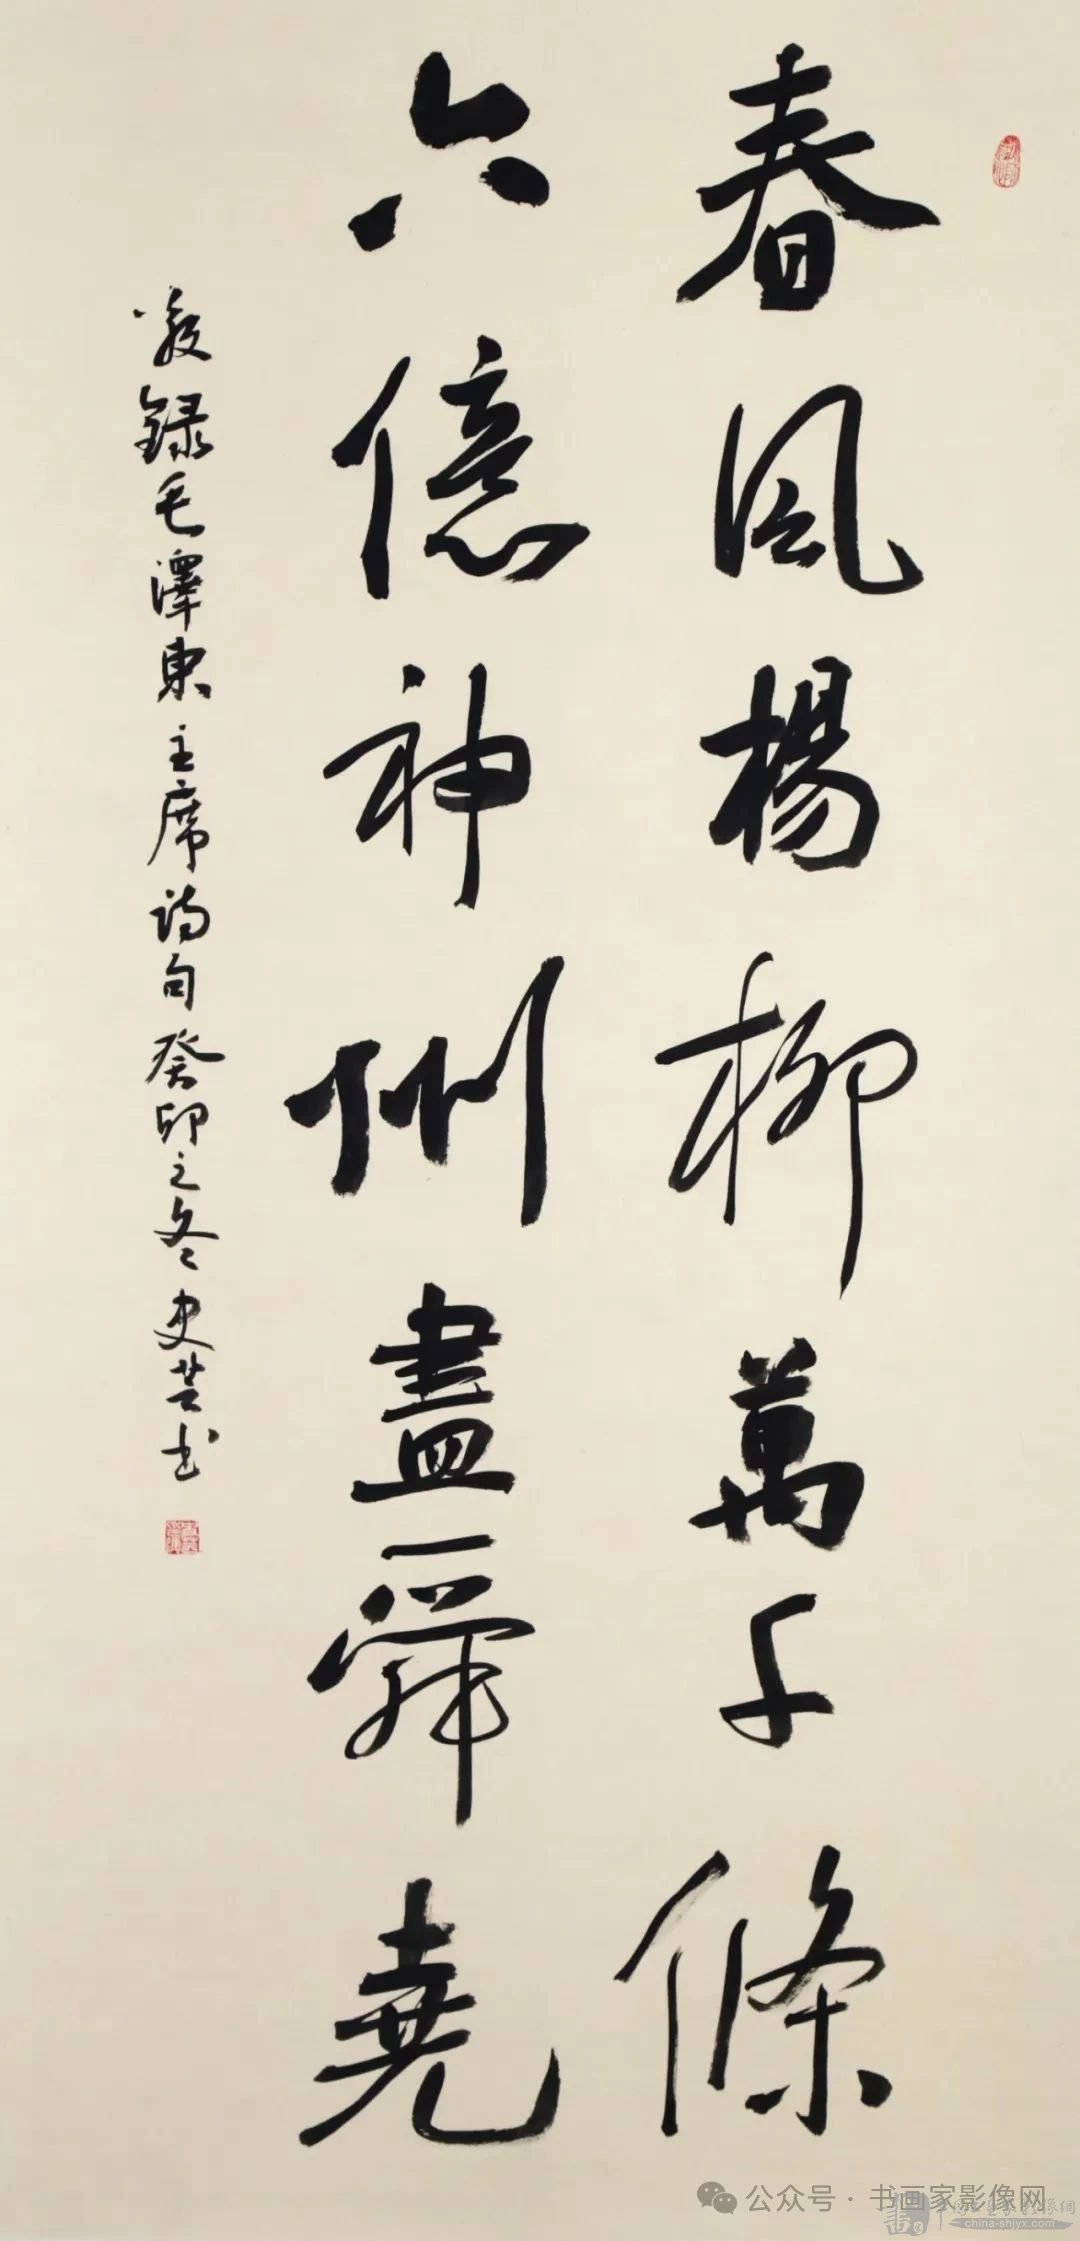 春风楊柳萬千條
六億神州盡舜堯
敬録毛澤東主席诗句癸卯之冬史芸书
公众号·书画家影像网
china-shjyx.com